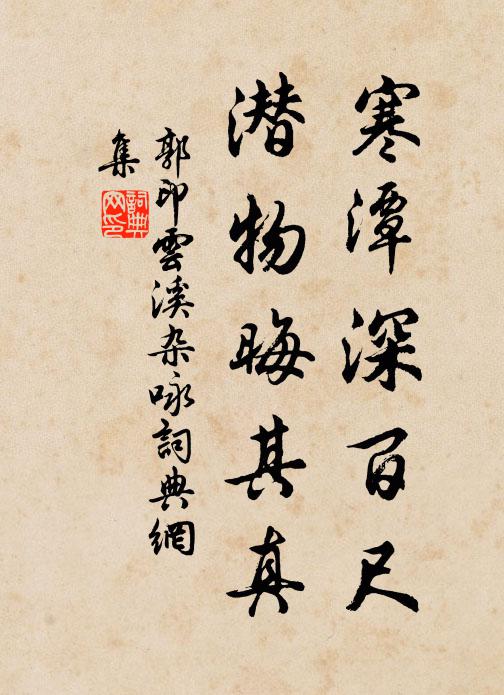 寒潭深百尺
潜物晦其真
郭印雲溪杂咏詞典網
集
詞典
网印